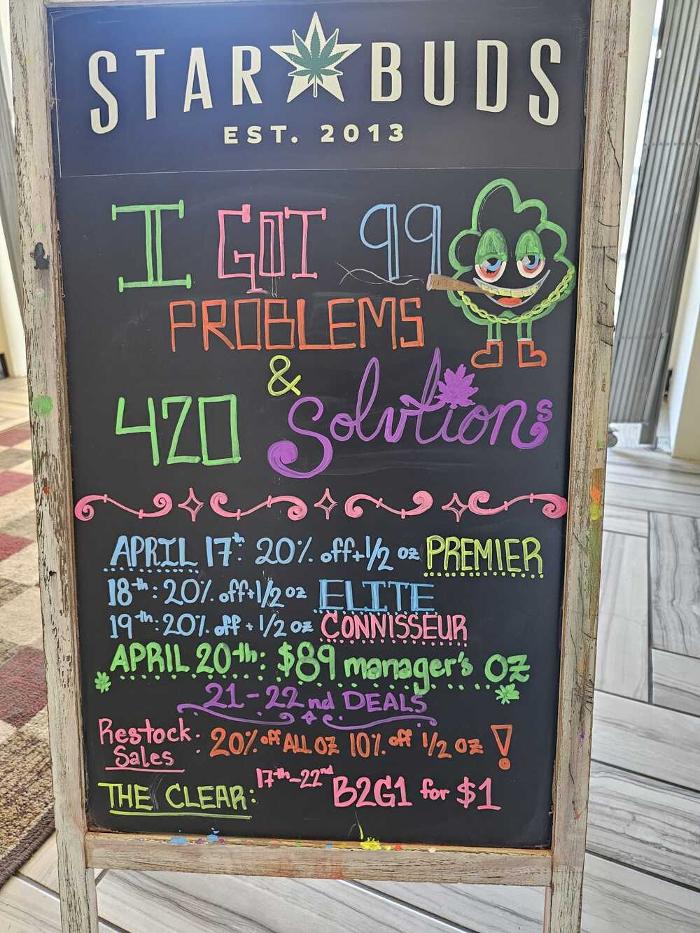 STAR BUDS
EST. 2013
I GOT 99
PROBLEMS
&
420 Solutions
APRIL 17th: 20% off + 1/2 oz PREMIER
18th: 20% off + 1/2 oz ELITE
19th: 20% off + 1/2 oz CONNISSEUR
APRIL 20th: $89 manager's OZ
21-22nd DEALS
Restock Sales: 20% off ALL OZ 10% off 1/2 oz !
THE CLEAR: 17th-22nd B2G1 for $1